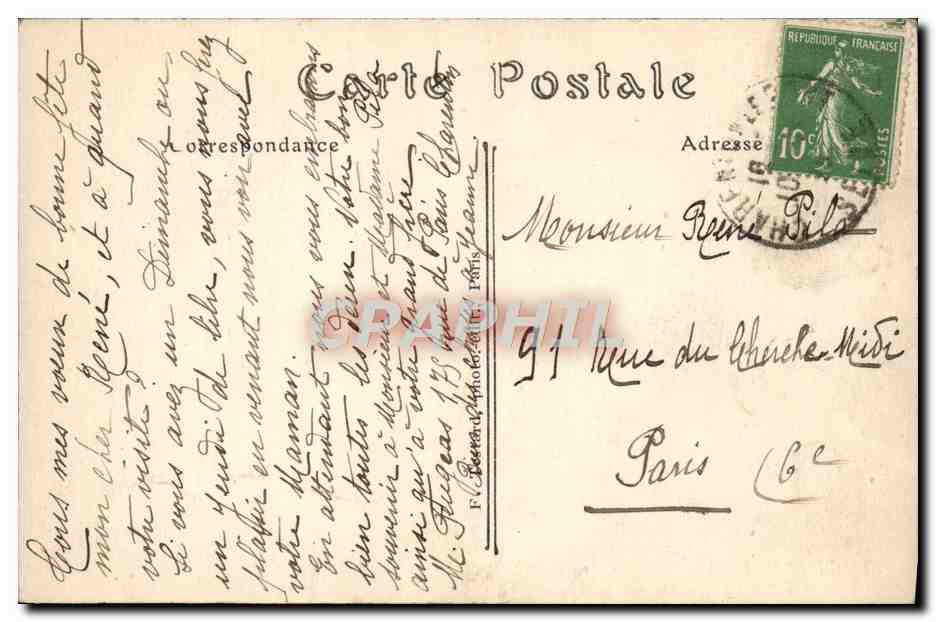 Carte Postale
Correspondance
Adresse
REPUBLIQUE FRANÇAISE
10c
POSTES
Tous mes voeux de bonne fête
mon cher René, et à quand
votre visite,
Si vous avez un Dimanche ou
un Jeudi de libre, vous nous ferez
plaisir en venant nous voir avec
votre Maman.
En attendant nous vous embrassons
bien toutes les deux. Votre bon
souvenir à Monsieur et Madame Pila
ainsi qu'à votre grand frère
M. Fugeas 173 rue de Paris Charenton
Jeanne
Monsieur René Pila
91 Rue du Cherche-Midi
Paris (6e
Paris
CPAPHIL